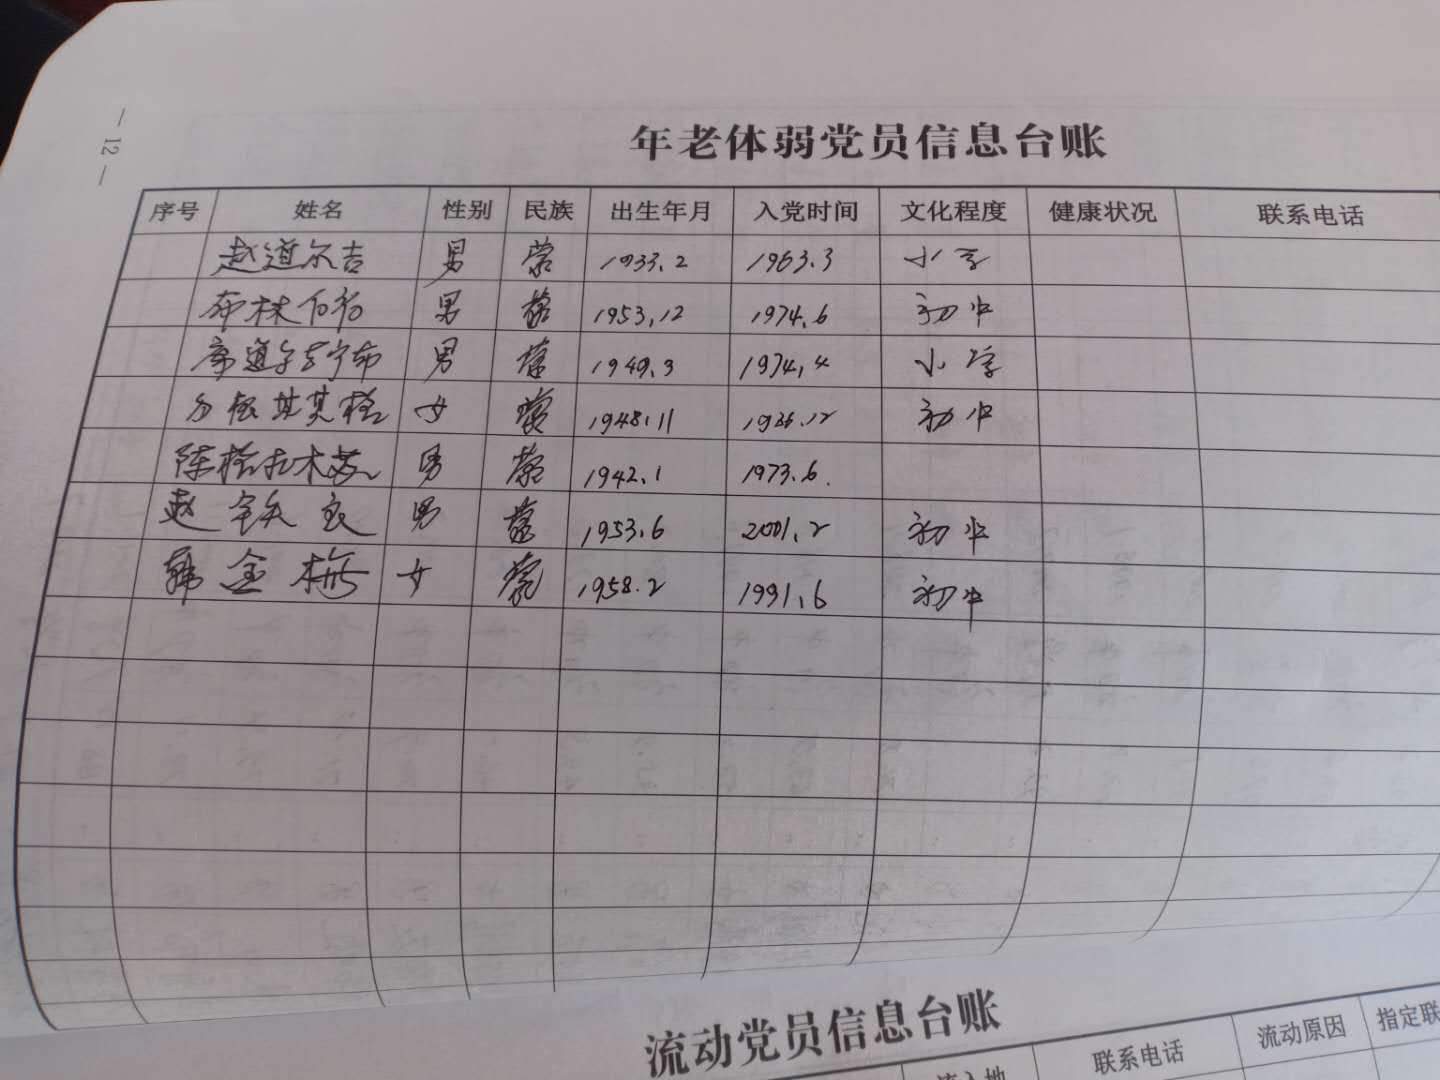 — 12 —
年老体弱党员信息台账
序号 姓名 性别 民族 出生年月 入党时间 文化程度 健康状况 联系电话
赵道尔吉 男 蒙 1933.2 1963.3 小学
布林 男 蒙 1953.12 1974.6 初中
道尔吉宁布 男 蒙 1949.3 1974.4 小学
其其格 女 蒙 1948.11 初中
陈格拉木苏 男 蒙 1942.1 1973.6.
赵铁良 男 蒙 1953.6 2001.2 初中
韩金梅 女 蒙 1958.2 1991.6 初中
流动党员信息台账
联系电话 流动原因 指定联